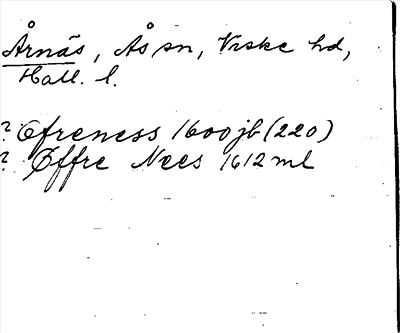 Årnäs, Ås sn, Viske hd,
Hall. l.
? Ofreness 1600 jb (220)
? Øffre Nees 1612 ml